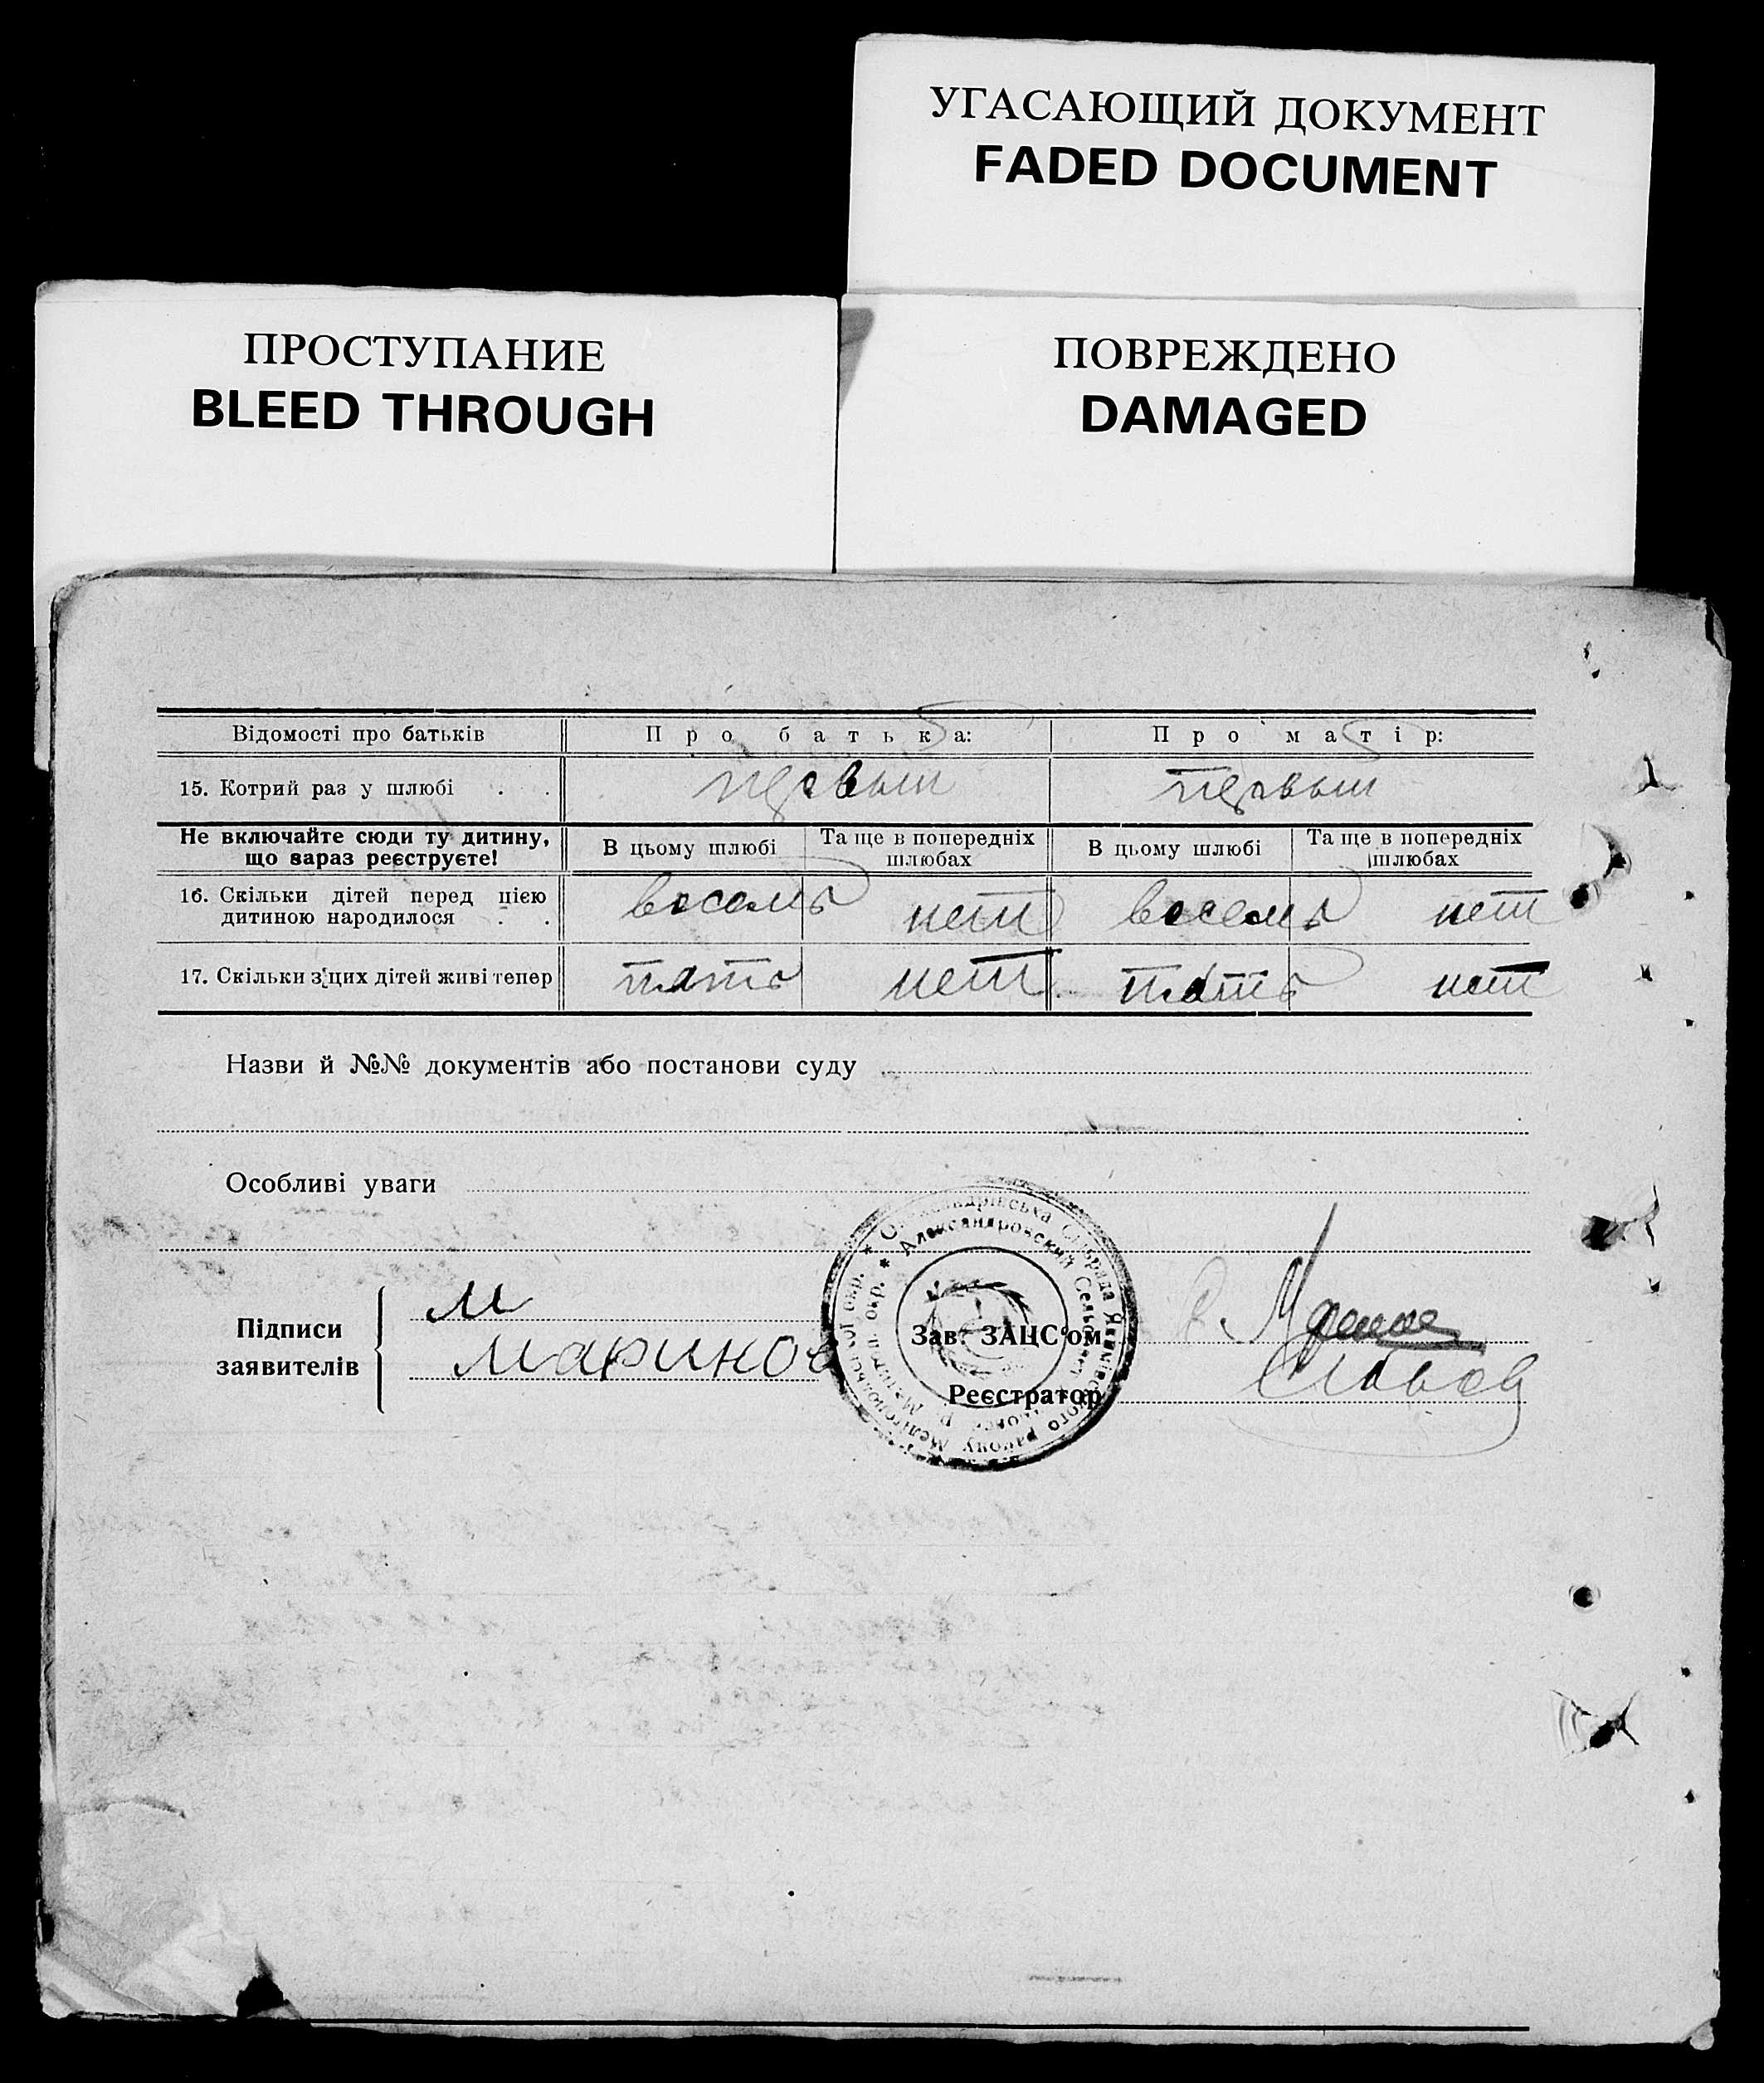 УГАСАЮЩИЙ ДОКУМЕНТ
FADED DOCUMENT
ПРОСТУПАНИЕ
BLEED THROUGH
ПОВРЕЖДЕНО
DAMAGED
Відомості про батьків Про батька: Про матір:
15. Котрий раз у шлюбі . . первый первый
Не включайте сюди ту дитину, що зараз реєструєте! В цьому шлюбі Та ще в попередніх шлюбах В цьому шлюбі Та ще в попередніх шлюбах
16. Скільки дітей перед цією
дитиною народилося . . восемь нет восемь нет
17. Скільки з цих дітей живі тепер пять нет пять нет
Назви й №№ документів або постанови суду
Особливі уваги
Олександрівська Сільрада Якимівського району Мелітопольської окр.
Александровский Сельсовет Мелитоп. окр.
Підписи
заявителів
М
Маринов
Зав. ЗАЦС'ом
Реєстратор